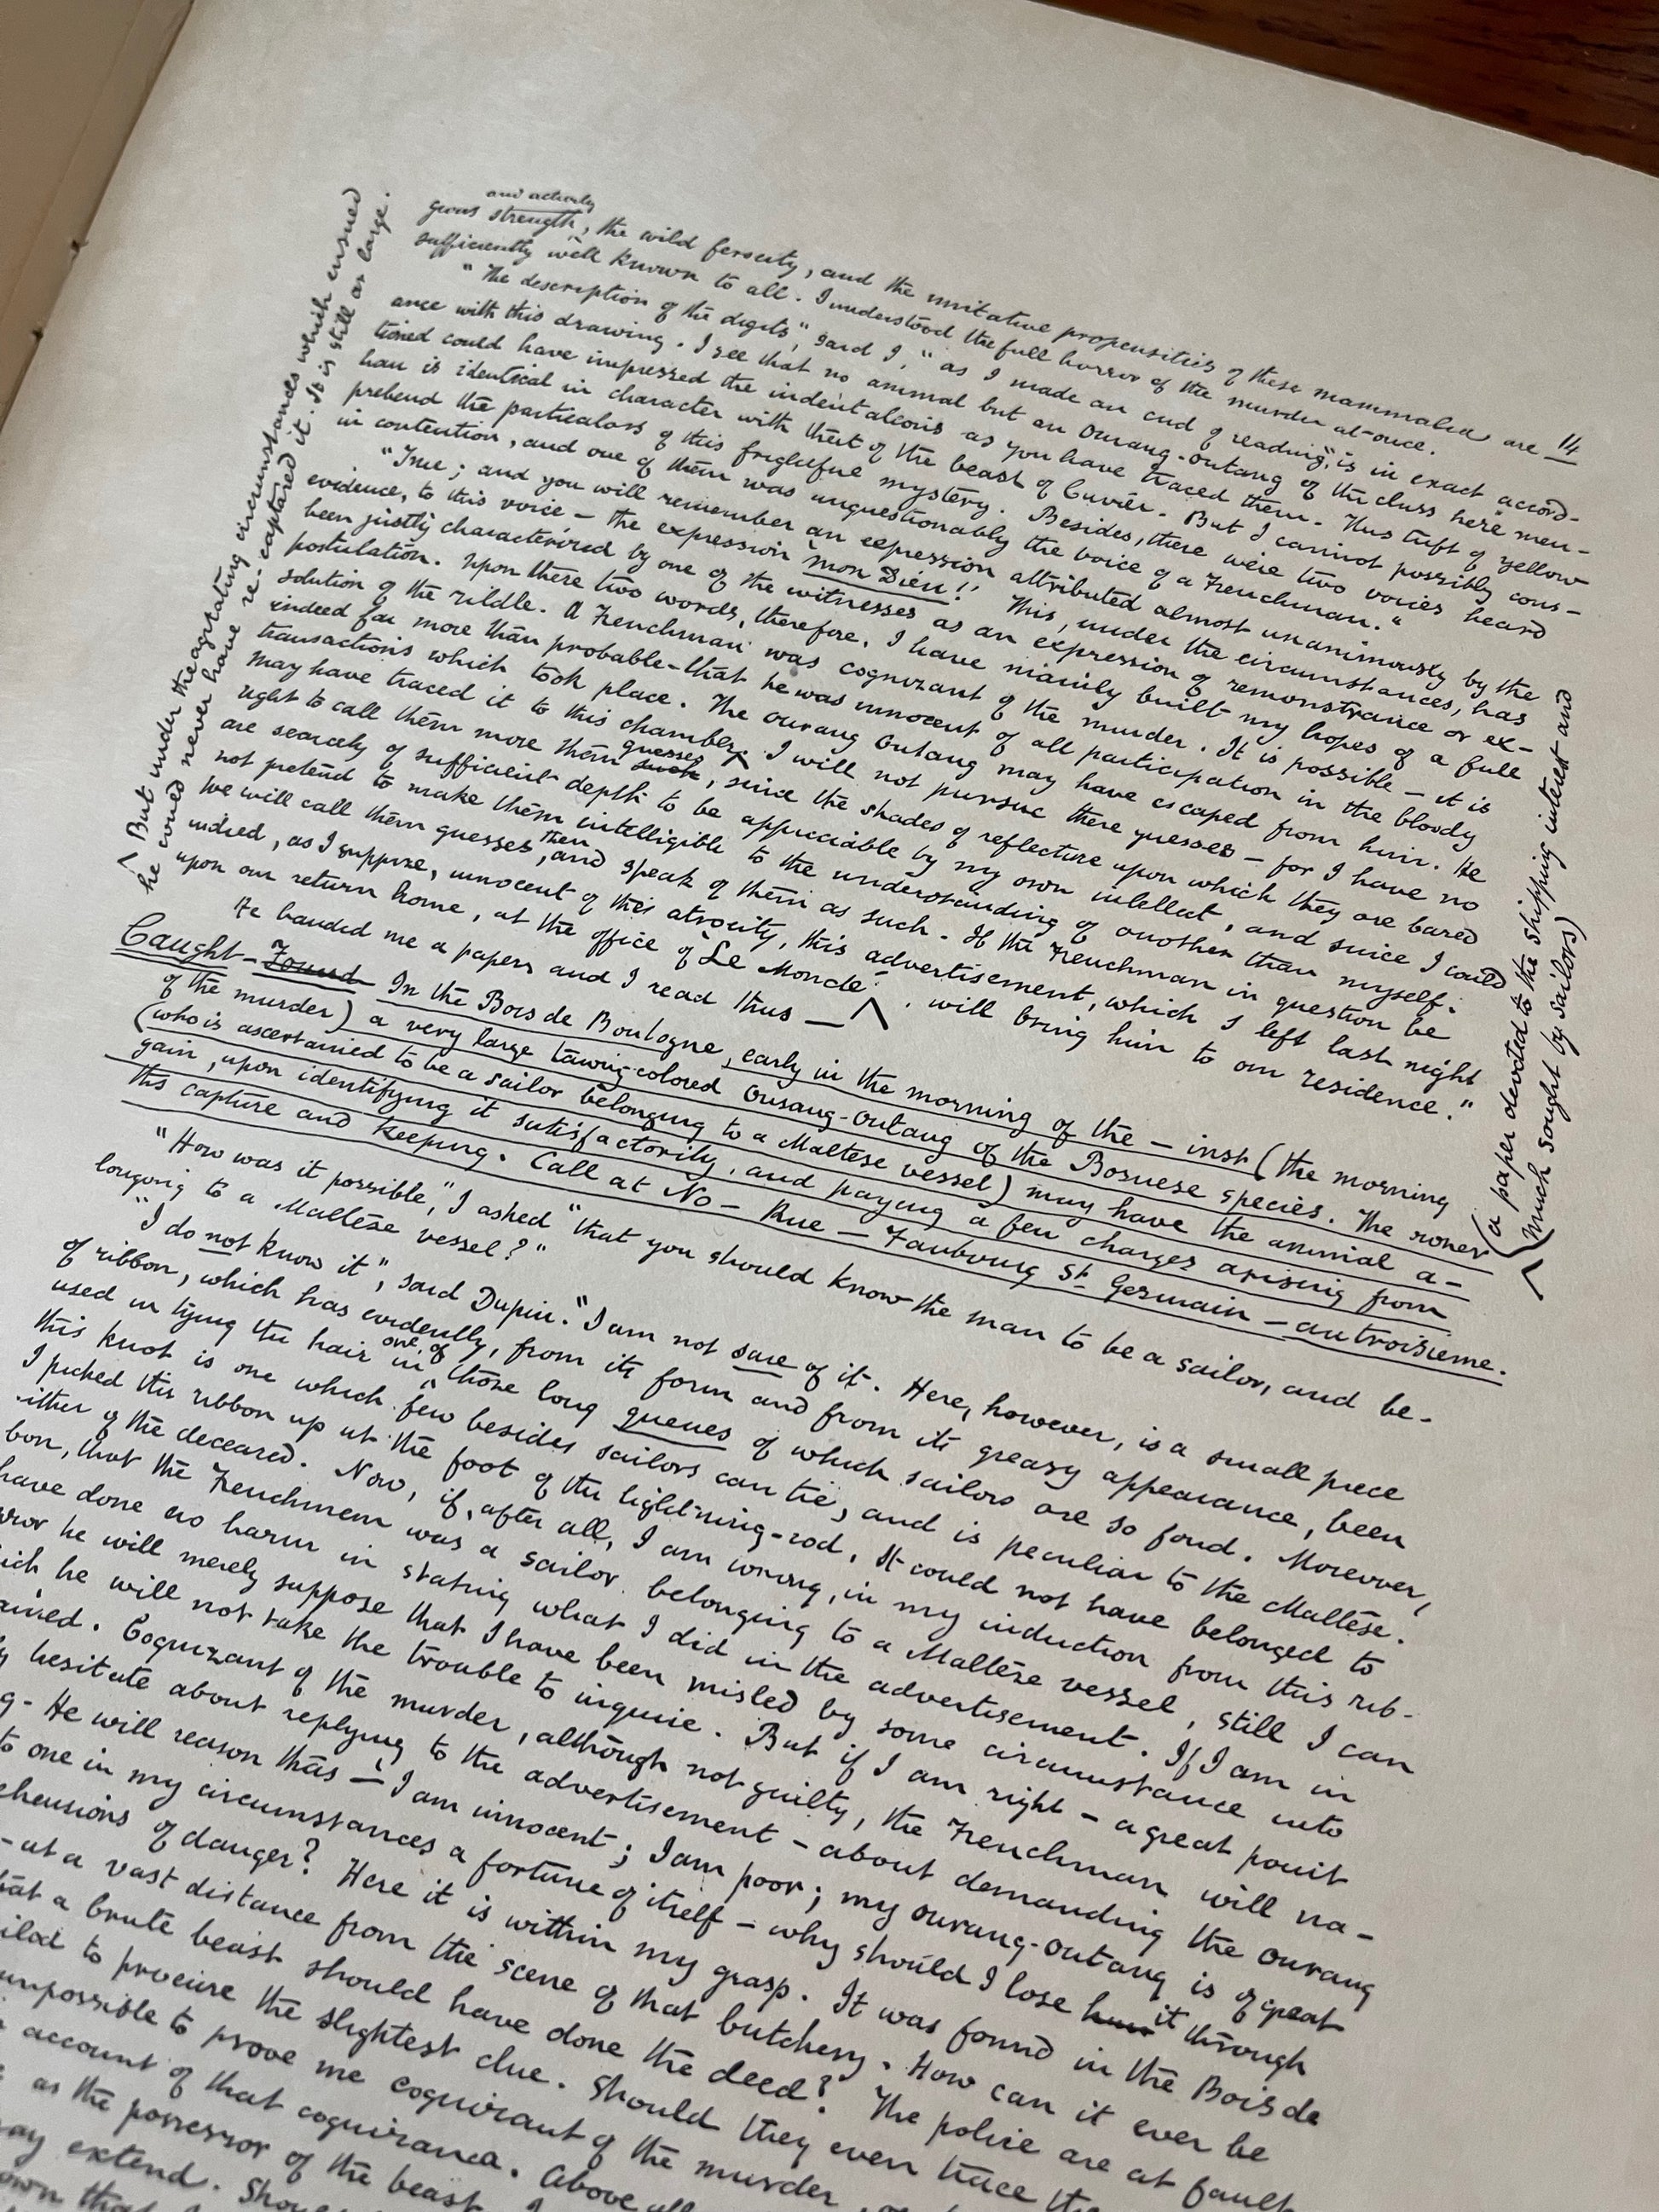 14
and activity
gious strength, the wild ferocity, and the imitative propensities of these mammalia are
sufficiently well known to all. I understood the full horror of the murder at once.
"The description of the digits", said I, "as I made an end of reading", is in exact accord-
ance with this drawing. I see that no animal but an Ourang-Outang of the class here men-
tioned could have impressed the indentations as you have traced them. This tuft of yellow
hair is identical in character with that of the beast of Cuvier. But I cannot possibly com-
prehend the particulars of this frightful mystery. Besides, there were two voices heard
in contention, and one of them was unquestionably the voice of a Frenchman."
"True; and you will remember an expression attributed almost unanimously by the
evidence, to this voice – the expression 'mon Dieu!' This, under the circumstances, has
been justly characterized by one of the witnesses as an expression of remonstrance or ex-
postulation. Upon these two words, therefore, I have mainly built my hopes of a full
solution of the riddle. A Frenchman was cognizant of the murder. It is possible – it is
indeed far more than probable – that he was innocent of all participation in the bloody
transactions which took place. The Ourang Outang may have escaped from him. He
may have traced it to this chamber. I will not pursue these guesses – for I have no
But under the agitating circumstances which ensued
he could never have re-captured it. It is still at large.
guesses
right to call them more than such, since the shades of reflection upon which they are based
are scarcely of sufficient depth to be appreciable by my own intellect, and since I could
not pretend to make them intelligible to the understanding of another than myself.
then
We will call them guesses, and speak of them as such. If the Frenchman in question be
indeed, as I suppose, innocent of this atrocity, this advertisement, which I left last night
upon our return home, at the office of 'Le Monde' will bring him to our residence."
(a paper devoted to the shipping interest and
much sought by sailors)
He handed me a paper and I read thus –
Caught – Found In the Bois de Boulogne, early in the morning of the – inst (the morning
of the murder) a very large tawny-colored Ourang-Outang of the Bornese species. The owner
(who is ascertained to be a sailor belonging to a Maltese vessel) may have the animal a-
gain, upon identifying it satisfactorily, and paying a few charges arising from
its capture and keeping. Call at No – Rue – Faubourg St. Germain – au troisieme.
"How was it possible," I asked "that you should know the man to be a sailor, and be-
longing to a Maltese vessel?"
"I do not know it", said Dupin. "I am not sure of it. Here, however, is a small piece
of ribbon, which has evidently, from its form and from its greasy appearance, been
one of
used in tying the hair in those long queues of which sailors are so fond. Moreover,
this knot is one which few besides sailors can tie, and is peculiar to the Maltese.
I picked this ribbon up at the foot of the lightning-rod. It could not have belonged to
either of the deceased. Now, if, after all, I am wrong, in my induction from this rib-
bon, that the Frenchman was a sailor belonging to a Maltese vessel, still I can
have done no harm in stating what I did in the advertisement. If I am in
error he will merely suppose that I have been misled by some circumstance into
which he will not take the trouble to inquire. But if I am right – a great point
gained. Cognizant of the murder, although not guilty, the Frenchman will na-
hesitate about replying to the advertisement – about demanding the Ourang
He will reason thus – 'I am innocent; I am poor; my ourang-outang is of great
to one in my circumstances a fortune of itself – why should I lose him it through
danger? Here it is within my grasp. It was found in the Bois de
– at a vast distance from the scene of that butchery. How can it ever be
that a brute beast should have done the deed? The police are at fault
to procure the slightest clue. Should they even trace the
impossible to prove me cognizant of the murder
account of that cognizance. Above all
as the possessor of the beast. I
extend.